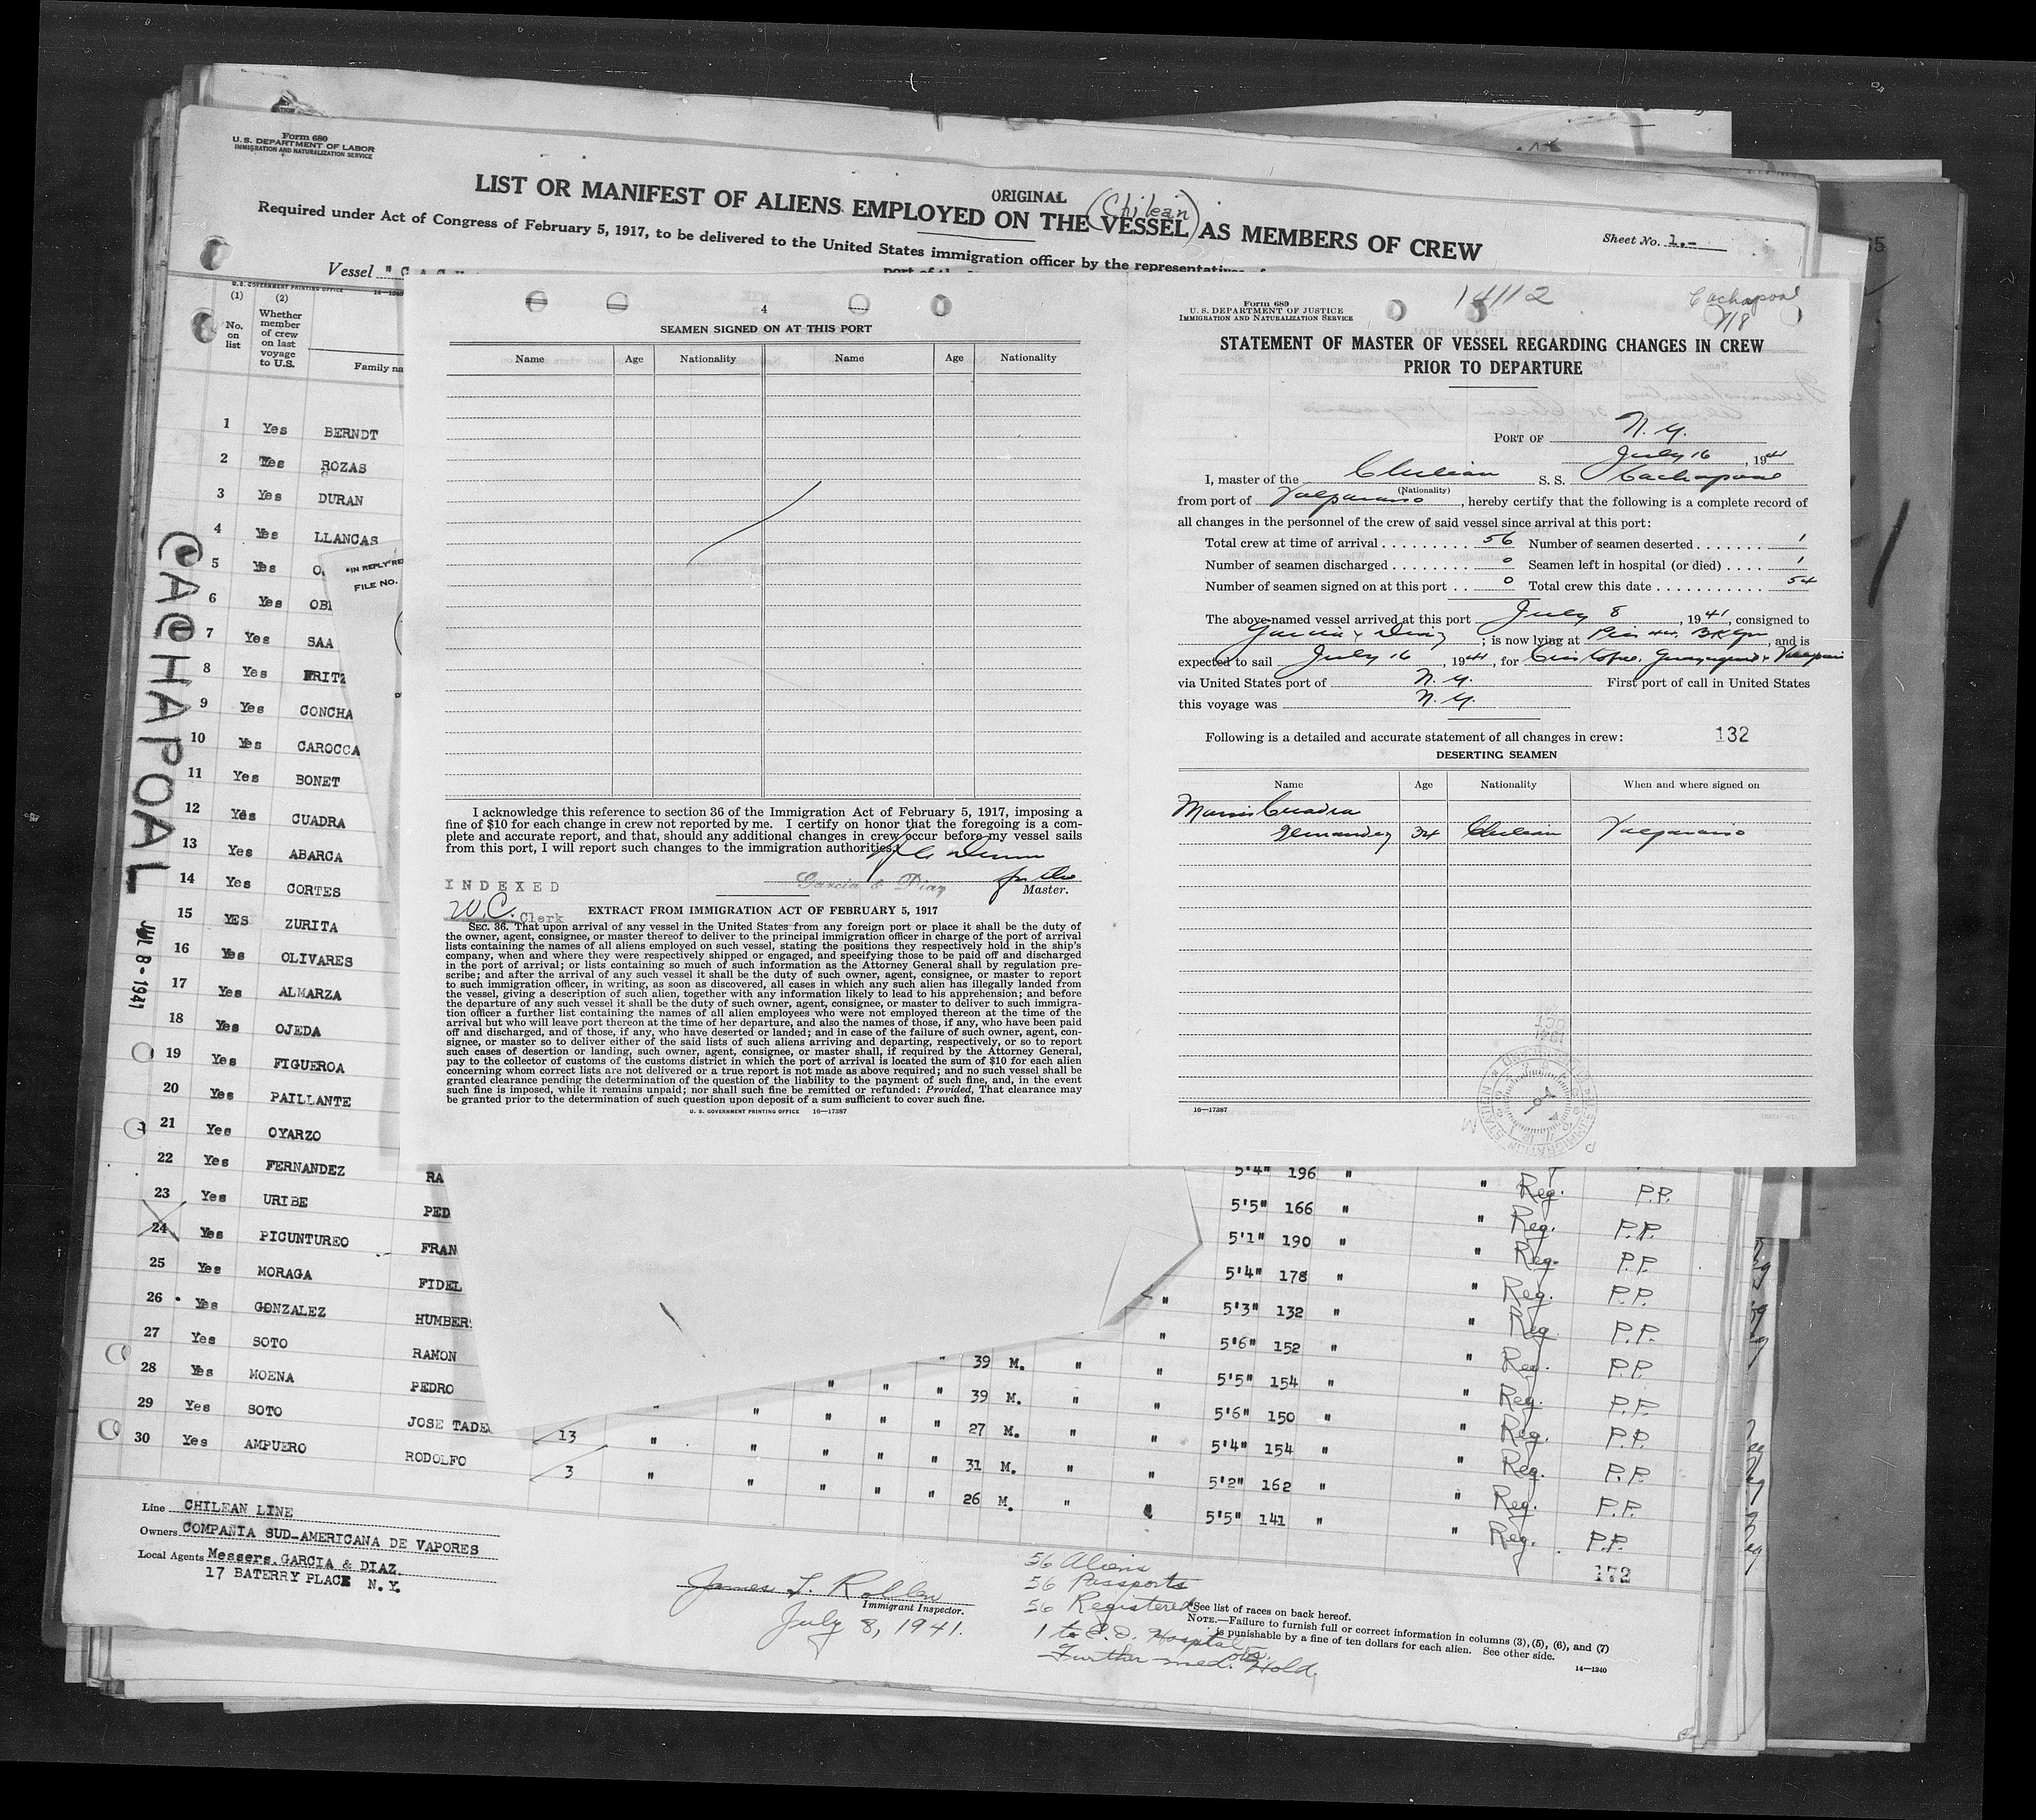 Form 689
U. S. DEPARTMENT OF LABOR
IMMIGRATION AND NATURALIZATION SERVICE
ORIGINAL
(Chilean)
LIST OR MANIFEST OF ALIENS EMPLOYED ON THE VESSEL AS MEMBERS OF CREW
Required under Act of Congress of February 5, 1917, to be delivered to the United States immigration officer by the representatives of
Sheet No. 1.-
Vessel
port of
U.S. GOVERNMENT PRINTING OFFICE 14-1240
(1) (2)
No. on list
Whether member of crew on last voyage to U.S.
Family na
1 Yes BERNDT
2 Yes ROZAS
3 Yes DURAN
4 Yes LLANCAS
5 Yes O
6 Yes OB
7 Yes SAA
8 Yes FRITZ
9 Yes CONCHA
10 Yes CAROCCA
11 Yes BONET
12 Yes CUADRA
13 Yes ABARCA
14 Yes CORTES
15 YES ZURITA
16 Yes OLIVARES
17 Yes ALMARZA
18 Yes OJEDA
19 Yes FIGUEROA
20 Yes PAILLANTE
21 Yes OYARZO
22 Yes FERNANDEZ RA
23 Yes URIBE PED
24 Yes PICUNTUREO FRAN
25 Yes MORAGA FIDEL
26 Yes GONZALEZ HUMBER
27 Yes SOTO RAMON
28 Yes MOENA PEDRO
29 Yes SOTO JOSE TADE
30 Yes AMPUERO RODOLFO
CACHAPOAL
JUL 8-1941
IN REPLY RE
FILE NO.
4
SEAMEN SIGNED ON AT THIS PORT
Name Age Nationality Name Age Nationality
I acknowledge this reference to section 36 of the Immigration Act of February 5, 1917, imposing a
fine of $10 for each change in crew not reported by me. I certify on honor that the foregoing is a com-
plete and accurate report, and that, should any additional changes in crew occur before my vessel sails
from this port, I will report such changes to the immigration authorities.
Garcia & Diaz for the
Master.
INDEXED
W.C. Clerk
EXTRACT FROM IMMIGRATION ACT OF FEBRUARY 5, 1917
SEC. 36. That upon arrival of any vessel in the United States from any foreign port or place it shall be the duty of
the owner, agent, consignee, or master thereof to deliver to the principal immigration officer in charge of the port of arrival
lists containing the names of all aliens employed on such vessel, stating the positions they respectively hold in the ship's
company, when and where they were respectively shipped or engaged, and specifying those to be paid off and discharged
in the port of arrival; or lists containing so much of such information as the Attorney General shall by regulation pre-
scribe; and after the arrival of any such vessel it shall be the duty of such owner, agent, consignee, or master to report
to such immigration officer, in writing, as soon as discovered, all cases in which any such alien has illegally landed from
the vessel, giving a description of such alien, together with any information likely to lead to his apprehension; and before
the departure of any such vessel it shall be the duty of such owner, agent, consignee, or master to deliver to such immigra-
tion officer a further list containing the names of all alien employees who were not employed thereon at the time of the
arrival but who will leave port thereon at the time of her departure, and also the names of those, if any, who have been paid
off and discharged, and of those, if any, who have deserted or landed; and in case of the failure of such owner, agent, con-
signee, or master so to deliver either of the said lists of such aliens arriving and departing, respectively, or so to report
such cases of desertion or landing, such owner, agent, consignee, or master shall, if required by the Attorney General,
pay to the collector of customs of the customs district in which the port of arrival is located the sum of $10 for each alien
concerning whom correct lists are not delivered or a true report is not made as above required; and no such vessel shall be
granted clearance pending the determination of the question of the liability to the payment of such fine, and, in the event
such fine is imposed, while it remains unpaid; nor shall such fine be remitted or refunded: Provided, That clearance may
be granted prior to the determination of such question upon deposit of a sum sufficient to cover such fine.
U. S. GOVERNMENT PRINTING OFFICE 16—17387
Form 689
U. S. DEPARTMENT OF JUSTICE
IMMIGRATION AND NATURALIZATION SERVICE
14112
Cachapoal
7/8
STATEMENT OF MASTER OF VESSEL REGARDING CHANGES IN CREW
PRIOR TO DEPARTURE
PORT OF N. Y.
July 16, 1941
I, master of the Chilean S. S. Cachapoal
(Nationality)
from port of Valparaiso, hereby certify that the following is a complete record of
all changes in the personnel of the crew of said vessel since arrival at this port:
Total crew at time of arrival 56 Number of seamen deserted 1
Number of seamen discharged 0 Seamen left in hospital (or died) 1
Number of seamen signed on at this port 0 Total crew this date 54
The above-named vessel arrived at this port July 8, 1941, consigned to
Garcia & Diaz; is now lying at Pier Bklyn, and is
expected to sail July 16, 1941, for Cristobal, Guayaquil & Valparaiso
via United States port of N. Y. First port of call in United States
this voyage was N. Y.
Following is a detailed and accurate statement of all changes in crew: 132
DESERTING SEAMEN
Name Age Nationality When and where signed on
Cuadra
Hernandez 34 Chilean Valparaiso
16—17387
5'4" 196 " " Reg. P.P.
5'5" 166 " " Reg. P.P.
5'1" 190 " " Reg. P.P.
5'4" 178 " " Reg. P.P.
5'3" 132 " " Reg. P.P.
5'6" 152 " " Reg. P.P.
39 M. " " 5'5" 154 " " Reg. P.P.
39 M. " " 5'6" 150 " " Reg. P.P.
27 M. " " 5'4" 154 " " Reg. P.P.
13 " " " " " 31 M. " " 5'2" 162 " " Reg. P.P.
3 " " " " " 26 M. " " 5'5" 141 " " Reg. P.P.
172
Line CHILEAN LINE
Owners COMPAÑIA SUD-AMERICANA DE VAPORES
Local Agents Messers. GARCIA & DIAZ.
17 BATERRY PLACE N.Y.
James L.
Immigrant Inspector.
July 8, 1941.
56 Aliens
56 Passports
56 Registered
1 to Hospital
Further med. Hold.
*See list of races on back hereof.
NOTE.—Failure to furnish full or correct information in columns (3), (5), (6), and (7)
is punishable by a fine of ten dollars for each alien. See other side.
14—1240